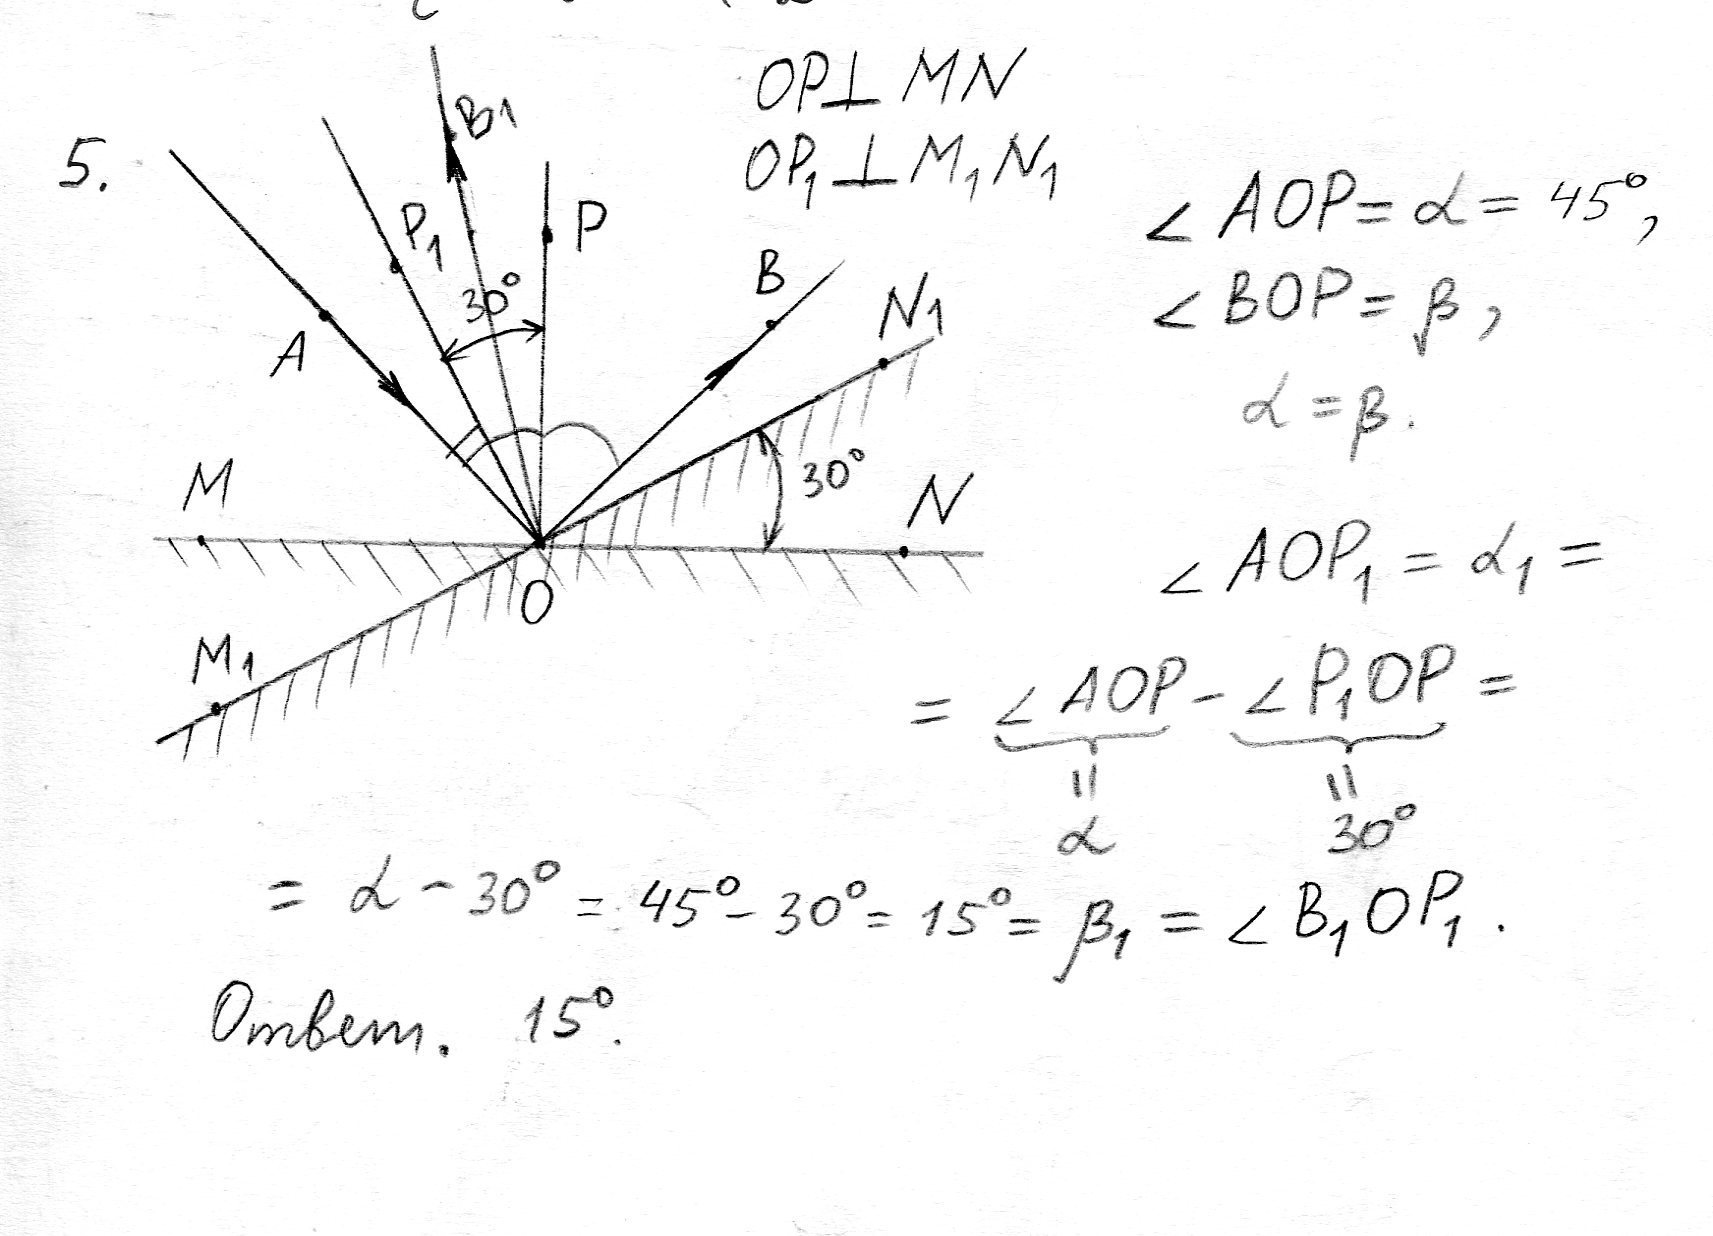 5.
B1
P1
P
30°
A
B
N1
M
30°
N
O
M1
OP⊥MN
OP1⊥M1N1
∠AOP=α=45°,
∠BOP=β,
α=β.
∠AOP1=α1=
=∠AOP-∠P1OP=
α 30°
=α-30°=45°-30°=15°=β1=∠B1OP1.
Ответ. 15°.